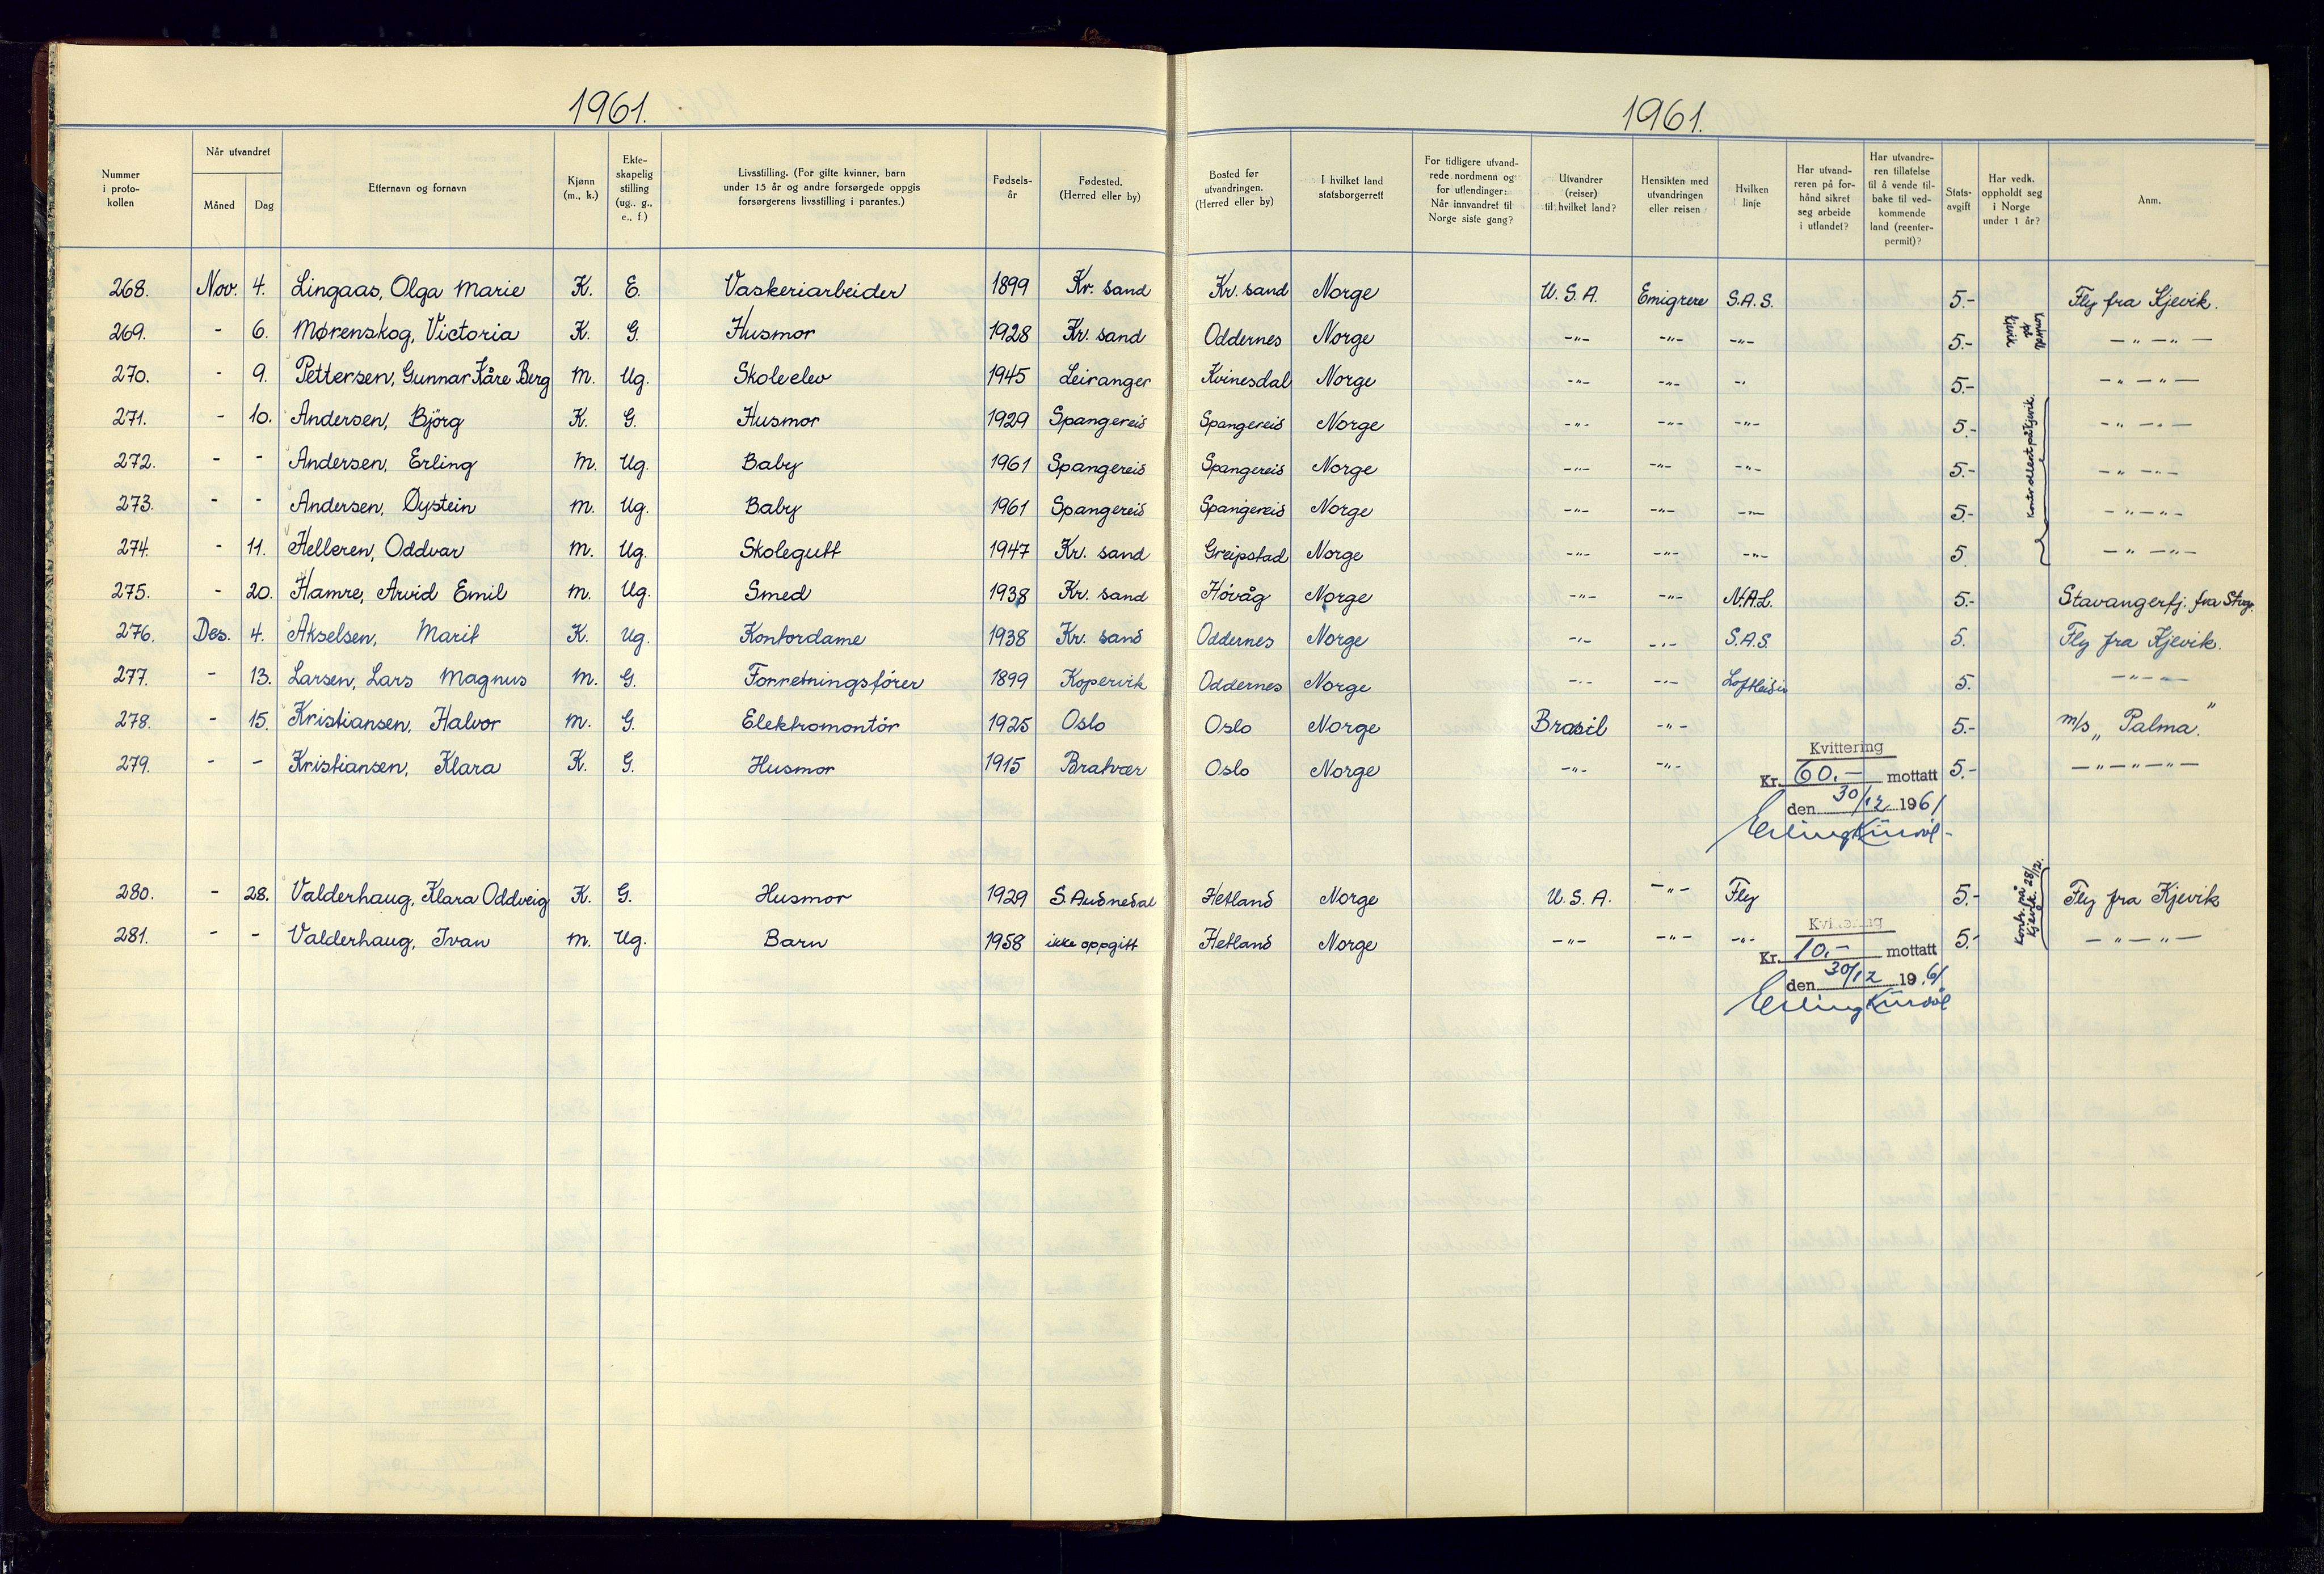 1961.
1961.
Nummer i proto- kollen
Når utvandret
Måned
Dag
Etternavn og fornavn
Kjønn (m., k.)
Ekte- skapelig stilling (ug., g., e., f.)
Livsstilling. (For gifte kvinner, barn under 15 år og andre forsørgede oppgis forsørgerens livsstilling i parantes.)
Fødsels- år
Fødested. (Herred eller by)
Bosted før utvandringen. (Herred eller by)
I hvilket land statsborgerrett
For tidligere utvand- rede nordmenn og for utlendinger: Når innvandret til Norge siste gang?
Utvandrer (reiser) til hvilket land?
Hensikten med utvandringen eller reisen
Hvilken linje
Har utvand- reren på for- hånd sikret seg arbeide i utlandet?
Har utvandre- ren tillatelse til å vende til- bake til ved- kommende land (reenter- permit)?
Stats- avgift
Har vedk. oppholdt seg i Norge under 1 år?
Anm.
268. Nov. 4. Lingaas, Olga Marie K. E. Vaskeriarbeider 1899 Kr. sand Kr. sand Norge U.S.A. Emigrere S.A.S. 5.- Fly fra Kjevik.
269. - 6. Mørenskog, Victoria K. G. Husmor 1928 Kr. sand Oddernes Norge -"- -"- -"- 5.- -"-"-
270. - 9. Pettersen, Gunnar Kåre Berg M. Ug. Skoleelev 1945 Leiranger Kvinesdal Norge -"- -"- -" 5.- -"-"-
271. - 10. Andersen, Björg K. G. Husmor 1929 Spangereid Spangereid Norge -"- -"- -"- 5.- -"-"-
272. - - Andersen, Erling M. Ug. Baby 1961 Spangereid Spangereid Norge -"- -"- -"- 5.- -"-"-
273. - - Andersen, Øystein M. Ug. Baby 1961 Spangereid Spangereid Norge -"- -"- -"- 5.- -"-"-
Kontrollert på Kjevik.
274. - 11. Helleren, Oddvar M. Ug. Skolegutt 1947 Kr. sand Greipstad Norge -"- -"- -"- 5 -"-"-
275. - 20. Hamre, Arvid Emil M. Ug. Smed 1938 Kr. sand Hövåg Norge -"- -"- N.A.L. 5.- Stavangerfj. fra Stvgr.
276. Des. 4. Akselsen, Marit K. Ug. Kontordame 1938 Kr. sand Oddernes Norge -"- -"- S.A.S. 5. Fly fra Kjevik.
277. - 13. Larsen, Lars Magnus M. G. Forretningsförer 1899 Kopervik Oddernes Norge -"- -"- Loftleidir 5. -"-"-
278. - 15. Kristiansen, Halvor M. G. Elektromontör 1925 Oslo Oslo Norge Brasil -"- 5.- m/s „Palma."
279. - - Kristiansen, Klara K. G. Husmor 1915 Brattvær Oslo Norge -"- -"- 5.- -"-"-"-
Kvittering
Kr. 60.- mottatt
den 30/12 1961
280. - 28. Valderhaug, Klara Oddveig K. G. Husmor 1929 S. Audnedal Hetland Norge U.S.A. -"- Fly 5.- Fly fra Kjevik
Kontr. på Kjevik. 28/12.
281. - - Valderhaug, Ivan M. Ug. Barn 1958 ikke oppgitt Hetland Norge -"- -"- -"- 5.- -"-"-
Kvittering
Kr. 10.- mottatt
den 30/12 1961